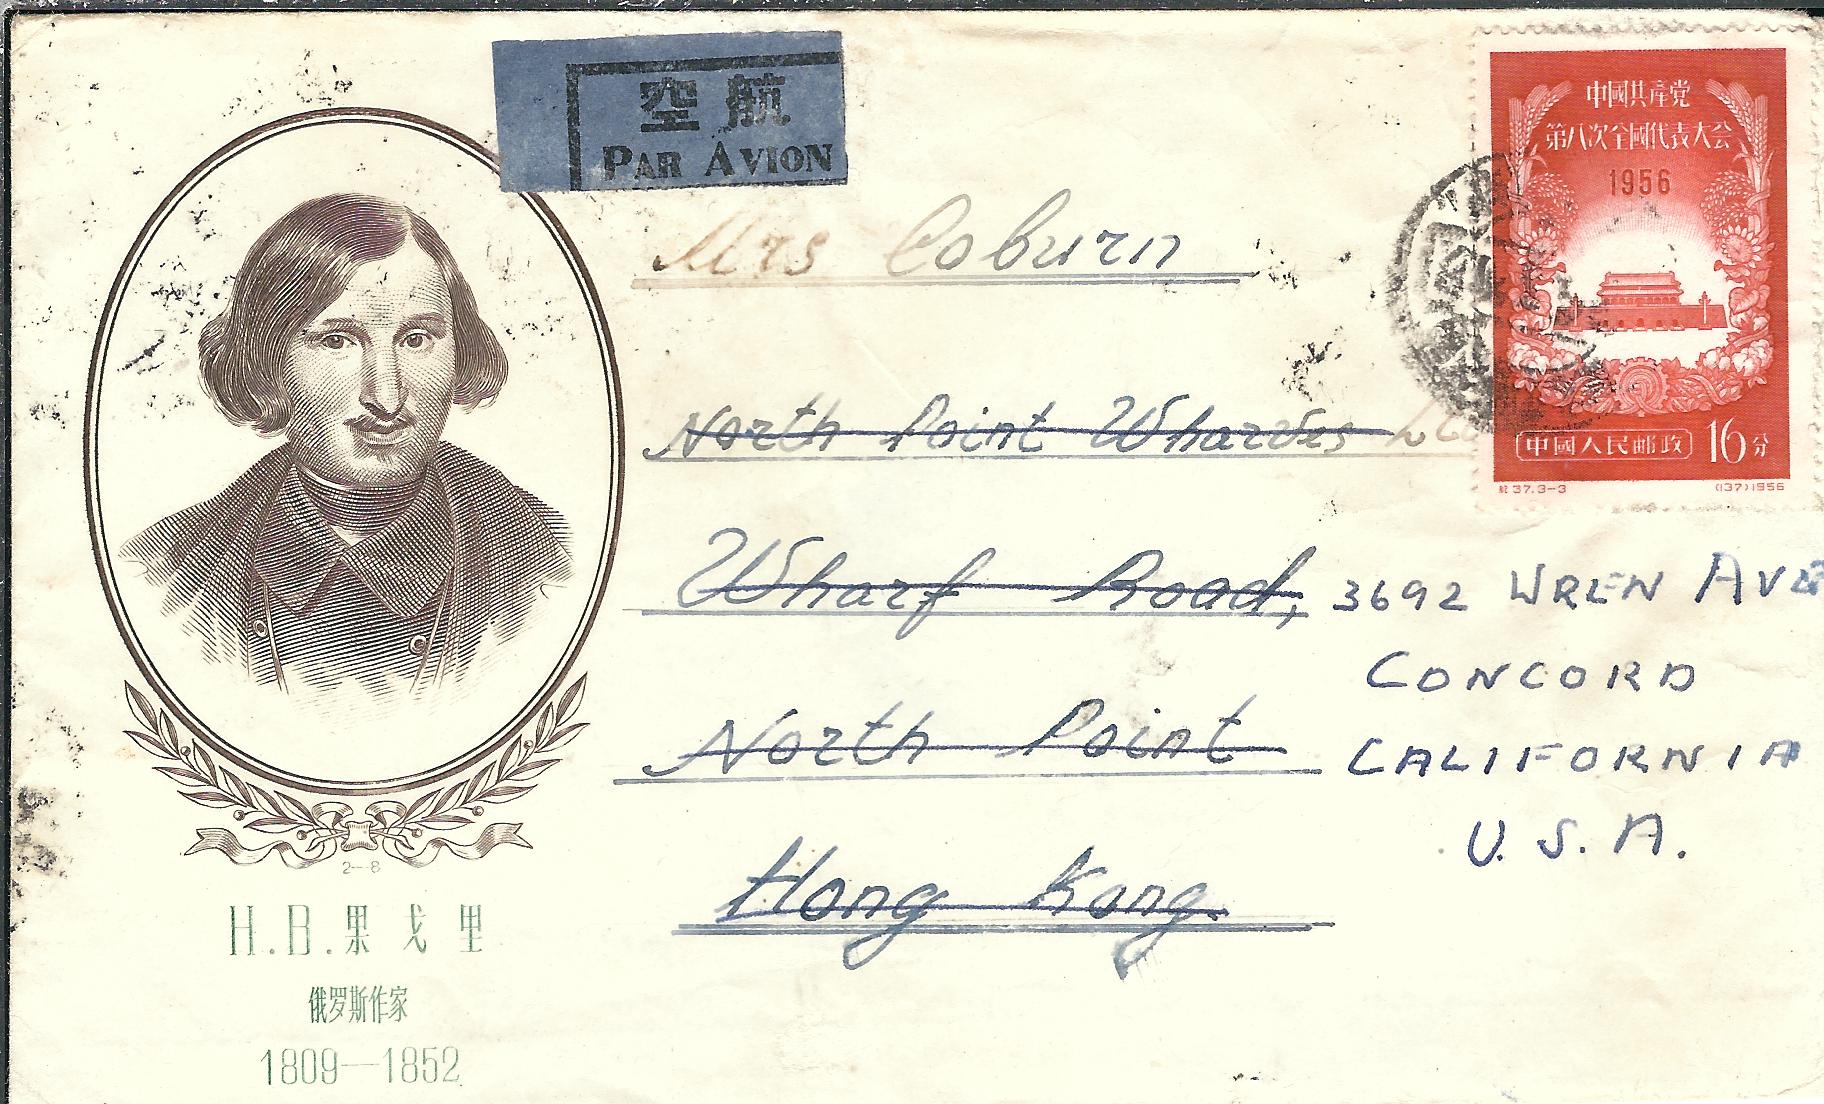 空航
PAR AVION
中國共產党
第八次全國代表大会
1956
中國人民邮政 16分
紀37.3-3 (137)1956
Mrs Coburn
North Point Wharves
Wharf Road,
North Point
Hong Kong.
3692 WREN AVE
CONCORD
CALIFORNIA
U.S.A.
2-8
H.B.果戈里
俄罗斯作家
1809—1852